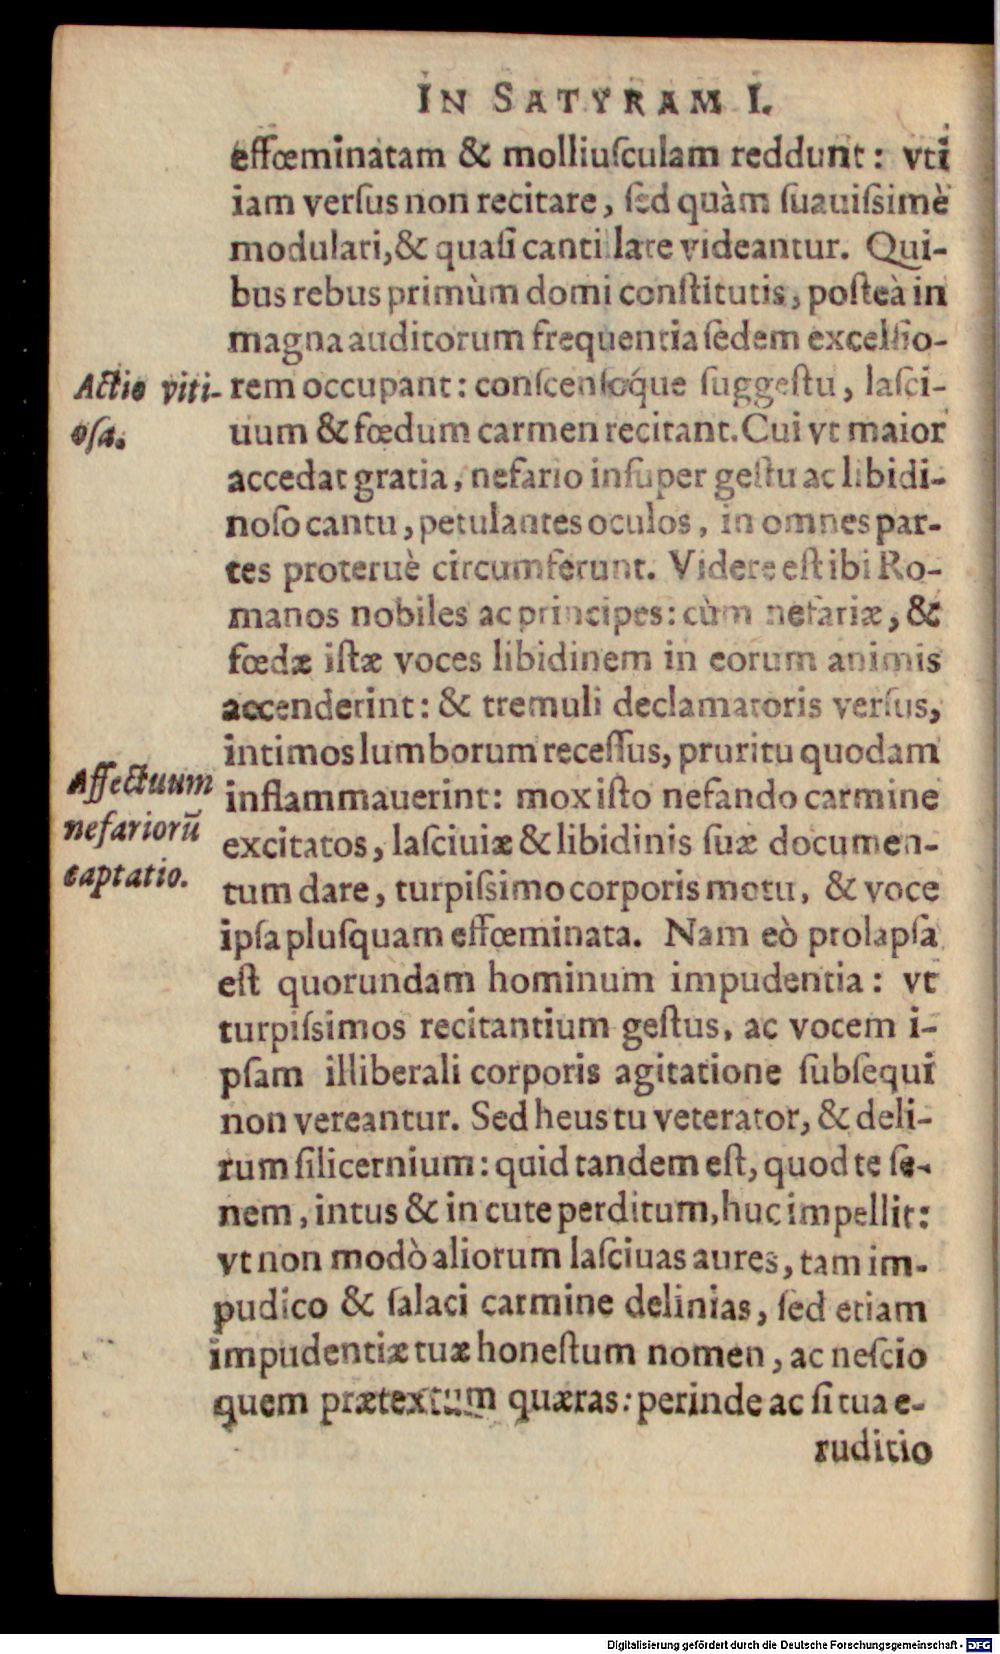 IN SATYRAM I.
effœminatam & molliuſculam reddunt: vti
iam verſus non recitare, ſed quàm ſuauiſsimè
modulari, & quaſi cantillare videantur. Qui-
bus rebus primùm domi conſtitutis, poſteà in
magna auditorum frequentia ſedem excelſio-
Actio viti-
oſa.
rem occupant: conſcenſoq́ue ſuggeſtu, laſci-
uum & fœdum carmen recitant. Cui vt maior
accedat gratia, nefario inſuper geſtu ac libidi-
noſo cantu, petulantes oculos, in omnes par-
tes proteruè circumferunt. Videre eſt ibi Ro-
manos nobiles ac principes: cùm nefariæ, &
fœdæ iſtæ voces libidinem in eorum animis
accenderint: & tremuli declamatoris verſus,
intimos lumborum receſſus, pruritu quodam
Affectuum
nefariorũ
captatio.
inflammauerint: mox iſto nefando carmine
excitatos, laſciuiæ & libidinis ſuæ documen-
tum dare, turpiſsimo corporis motu, & voce
ipſa pluſquam effœminata. Nam eò prolapſa
eſt quorundam hominum impudentia: vt
turpiſsimos recitantium geſtus, ac vocem i-
pſam illiberali corporis agitatione ſubſequi
non vereantur. Sed heus tu veterator, & deli-
rum ſilicernium: quid tandem eſt, quod te ſe-
nem, intus & in cute perditum, huc impellit:
vt non modò aliorum laſciuas aures, tam im-
pudico & ſalaci carmine delinias, ſed etiam
impudentiæ tuæ honeſtum nomen, ac neſcio
quem prætextum quæras: perinde ac ſi tua e-
ruditio
Digitalisierung gefördert durch die Deutsche Forschungsgemeinschaft - DFG